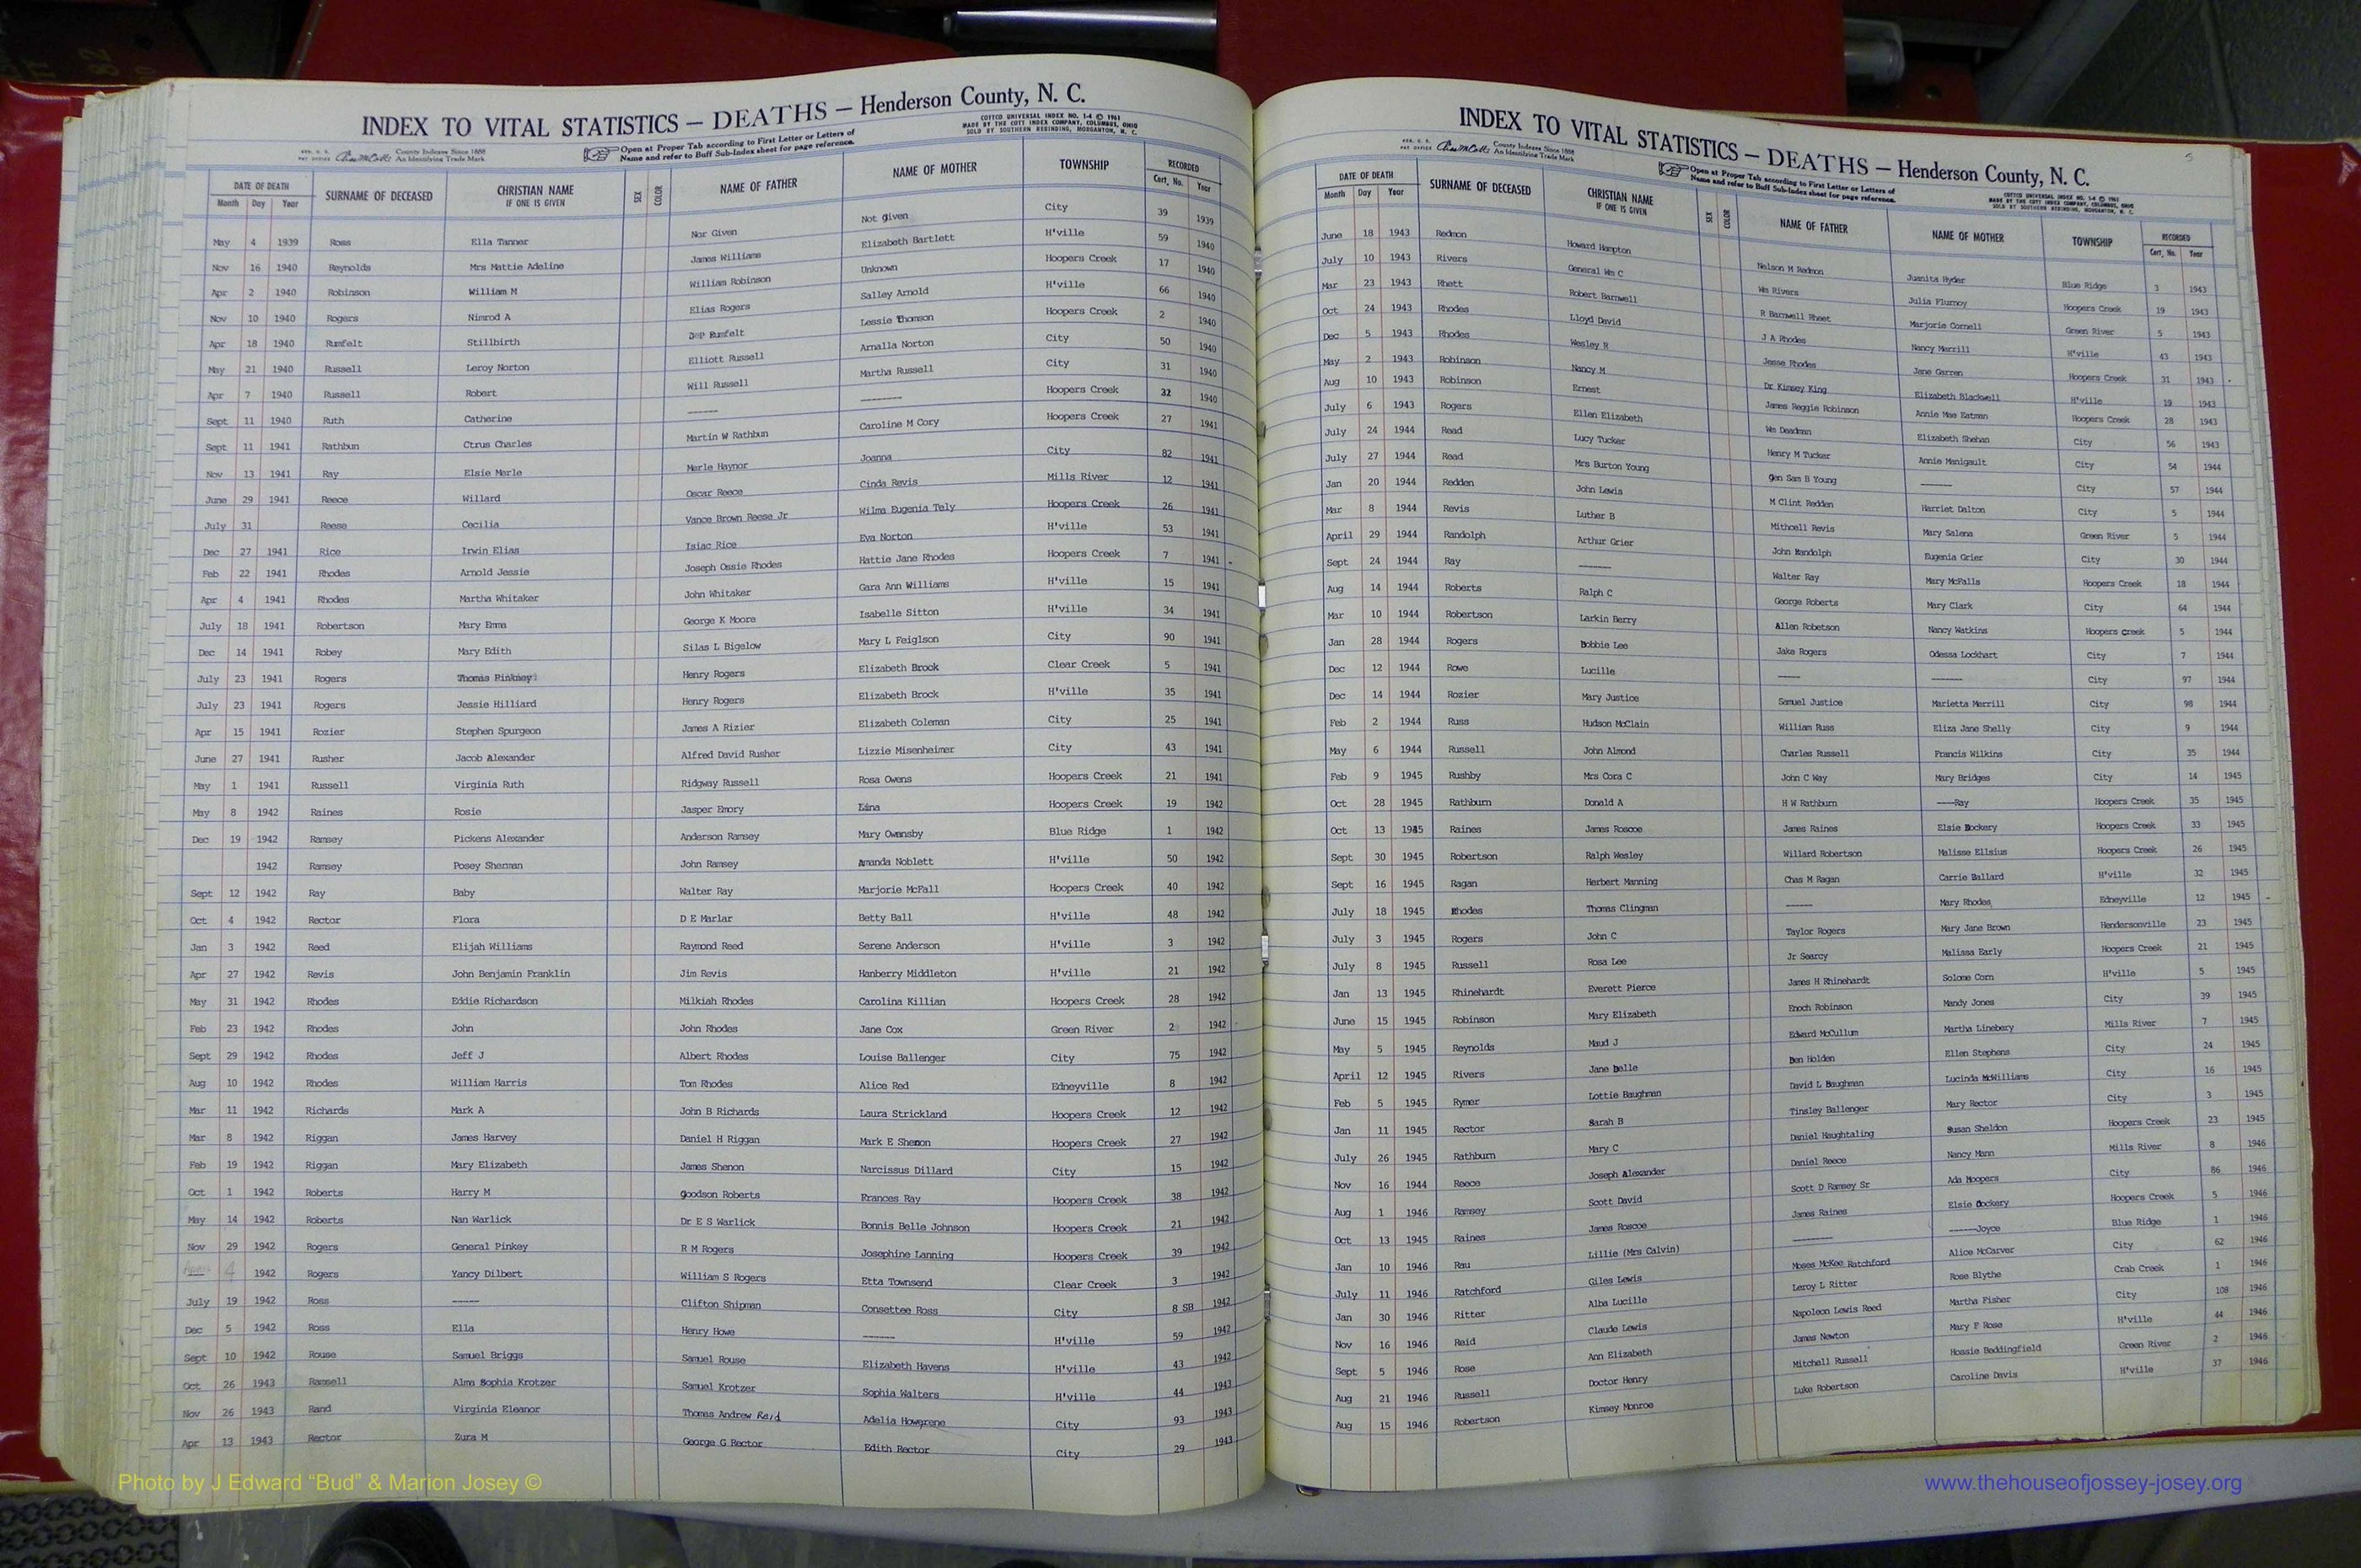 INDEX TO VITAL STATISTICS — DEATHS — Henderson County, N. C.
REG. U. S. PAT OFFICE County Indexes Since 1888 An Identifying Trade Mark
Open at Proper Tab according to First Letter or Letters of Name and refer to Buff Sub-Index sheet for page reference.
COTTCO UNIVERSAL INDEX NO. 1-4 © 1961
MADE BY THE COTT INDEX COMPANY, COLUMBUS, OHIO
SOLD BY SOUTHERN REBINDING, MORGANTON, N. C.
DATE OF DEATH Month Day Year SURNAME OF DECEASED CHRISTIAN NAME IF ONE IS GIVEN SEX COLOR NAME OF FATHER NAME OF MOTHER TOWNSHIP RECORDED Cert. No. Year
May 4 1939 Ross Ella Tanner Nor Given Not given City 39 1939
Nov 16 1940 Reynolds Mrs Mattie Adeline James Williams Elizabeth Bartlett H'ville 59 1940
Apr 2 1940 Robinson William M William Robinson Unknown Hoopers Creek 17 1940
Nov 10 1940 Rogers Nimrod A Elias Rogers Salley Arnold H'ville 66 1940
Apr 18 1940 Rumfelt Stillbirth Rumfelt Lessie Thomson Hoopers Creek 2 1940
May 21 1940 Russell Leroy Norton Elliott Russell Arnalla Norton City 50 1940
Apr 7 1940 Russell Robert Will Russell Martha Russell City 31 1940
Sept 11 1940 Ruth Catherine ------ -------- Hoopers Creek 32 1940
Sept 11 1941 Rathbun Ctrus Charles Martin W Rathbun Caroline M Cory Hoopers Creek 27 1941
Nov 13 1941 Ray Elsie Merle Merle Haynor Joanna City 82 1941
June 29 1941 Reece Willard Oscar Reece Cinda Revis Mills River 12 1941
July 31 Reese Cecilia Vance Brown Reese Jr Wilma Eugenia Tely Hoopers Creek 26 1941
Dec 27 1941 Rice Irwin Elias Isiac Rice Eva Norton H'ville 53 1941
Feb 22 1941 Rhodes Arnold Jessie Joseph Ossie Rhodes Hattie Jane Rhodes Hoopers Creek 7 1941
Apr 4 1941 Rhodes Martha Whitaker John Whitaker Gara Ann Williams H'ville 15 1941
July 18 1941 Robertson Mary Emma George K Moore Isabelle Sitton H'ville 34 1941
Dec 14 1941 Robey Mary Edith Silas L Bigelow Mary L Feiglson City 90 1941
July 23 1941 Rogers Thomas Pinkney Henry Rogers Elizabeth Brock Clear Creek 5 1941
July 23 1941 Rogers Jessie Hilliard Henry Rogers Elizabeth Brock H'ville 35 1941
Apr 15 1941 Rozier Stephen Spurgeon James A Rizier Elizabeth Coleman City 25 1941
June 27 1941 Rusher Jacob Alexander Alfred David Rusher Lizzie Misenheimer City 43 1941
May 1 1941 Russell Virginia Ruth Ridgway Russell Rosa Owens Hoopers Creek 21 1941
May 8 1942 Raines Rosie Jasper Emory Edna Hoopers Creek 19 1942
Dec 19 1942 Ramsey Pickens Alexander Anderson Ramsey Mary Owensby Blue Ridge 1 1942
1942 Ramsey Posey Sherman John Ramsey Amanda Noblett H'ville 50 1942
Sept 12 1942 Ray Baby Walter Ray Marjorie McFall Hoopers Creek 40 1942
Oct 4 1942 Rector Flora D E Marlar Betty Ball H'ville 48 1942
Jan 3 1942 Reed Elijah Williams Raymond Reed Serene Anderson H'ville 3 1942
Apr 27 1942 Revis John Benjamin Franklin Jim Revis Hanberry Middleton H'ville 21 1942
May 31 1942 Rhodes Eddie Richardson Milkiah Rhodes Carolina Killian Hoopers Creek 28 1942
Feb 23 1942 Rhodes John John Rhodes Jane Cox Green River 2 1942
Sept 29 1942 Rhodes Jeff J Albert Rhodes Louise Ballenger City 75 1942
Aug 10 1942 Rhodes William Harris Tom Rhodes Alice Red Edneyville 8 1942
Mar 11 1942 Richards Mark A John B Richards Laura Strickland Hoopers Creek 12 1942
Mar 8 1942 Riggan James Harvey Daniel H Riggan Mark E Shenon Hoopers Creek 27 1942
Feb 19 1942 Riggan Mary Elizabeth James Shenon Narcissus Dillard City 15 1942
Oct 1 1942 Roberts Harry M goodson Roberts Frances Ray Hoopers Creek 38 1942
May 14 1942 Roberts Nan Warlick Dr E S Warlick Bonnis Belle Johnson Hoopers Creek 21 1942
Nov 29 1942 Rogers General Pinkey R M Rogers Josephine Lanning Hoopers Creek 39 1942
4 1942 Rogers Yancy Dilbert William S Rogers Etta Townsend Clear Creek 3 1942
July 19 1942 Ross ----- Clifton Shipman Consettee Ross City 8 SB 1942
Dec 5 1942 Ross Ella Henry Howe ------- H'ville 59 1942
Sept 10 1942 Rouse Samuel Briggs Samuel Rouse Elizabeth Havens H'ville 43 1942
Oct 26 1943 Ramsell Alma Sophia Krotzer Samuel Krotzer Sophia Walters H'ville 44 1943
Nov 26 1943 Rand Virginia Eleanor Thomas Andrew Reid Adelia Howgrene City 93 1943
Apr 13 1943 Rector Zura M George G Rector Edith Rector City 29 1943
INDEX TO VITAL STATISTICS — DEATHS — Henderson County, N. C.
REG. U. S. PAT OFFICE County Indexes Since 1888 An Identifying Trade Mark
Open at Proper Tab according to First Letter or Letters of Name and refer to Buff Sub-Index sheet for page reference.
COTTCO UNIVERSAL INDEX NO. 1-4 © 1961
MADE BY THE COTT INDEX COMPANY, COLUMBUS, OHIO
SOLD BY SOUTHERN REBINDING, MORGANTON, N. C.
5
DATE OF DEATH Month Day Year SURNAME OF DECEASED CHRISTIAN NAME IF ONE IS GIVEN SEX COLOR NAME OF FATHER NAME OF MOTHER TOWNSHIP RECORDED Cert. No. Year
June 18 1943 Redmon Howard Hampton Nelson M Redmon Juanita Hyder Blue Ridge 3 1943
July 10 1943 Rivers General Wm C Wm Rivers Julia Flurnoy Hoopers Creek 19 1943
Mar 23 1943 Rhett Robert Barnwell R Barnwell Rheet Marjorie Cornell Green River 5 1943
Oct 24 1943 Rhodes Lloyd David J A Rhodes Nancy Merrill H'ville 43 1943
Dec 5 1943 Rhodes Wesley R Jesse Rhodes Jane Garren Hoopers Creek 31 1943
May 2 1943 Robinson Nancy M Dr Kimsey King Elizabeth Blackwell H'ville 19 1943
Aug 10 1943 Robinson Ernest James Reggie Robinson Annie Mae Eatman Hoopers Creek 28 1943
July 6 1943 Rogers Ellen Elizabeth Wm Deadman Elizabeth Shehan City 56 1943
July 24 1944 Read Lucy Tucker Henry M Tucker Annie Manigault City 54 1944
July 27 1944 Read Mrs Burton Young gen Sam B Young ------- City 57 1944
Jan 20 1944 Redden John Lewis M Clint Redden Harriet Dalton City 5 1944
Mar 8 1944 Revis Luther B Mithcell Revis Mary Salena Green River 5 1944
April 29 1944 Randolph Arthur Grier John Randolph Eugenia Grier City 30 1944
Sept 24 1944 Ray ------- Walter Ray Mary McFalls Hoopers Creek 18 1944
Aug 14 1944 Roberts Ralph C George Roberts Mary Clark City 64 1944
Mar 10 1944 Robertson Larkin Berry Allen Robetson Nancy Watkins Hoopers creek 5 1944
Jan 28 1944 Rogers Bobbie Lee Jake Rogers Odessa Lockhart City 7 1944
Dec 12 1944 Rowe Lucille ----- ------- City 97 1944
Dec 14 1944 Rozier Mary Justice Samuel Justice Marietta Merrill City 98 1944
Feb 2 1944 Russ Hudson McClain William Russ Eliza Jane Shelly City 9 1944
May 6 1944 Russell John Almond Charles Russell Francis Wilkins City 35 1944
Feb 9 1945 Rushby Mrs Cora C John C Way Mary Bridges City 14 1945
Oct 28 1945 Rathburn Donald A H W Rathburn ----Ray Hoopers Creek 35 1945
Oct 13 1945 Raines James Roscoe James Raines Elsie Dockery Hoopers Creek 33 1945
Sept 30 1945 Robertson Ralph Wesley Willard Robertson Malisse Ellsius Hoopers Creek 26 1945
Sept 16 1945 Ragan Herbert Manning Chas M Ragan Carrie Ballard H'ville 32 1945
July 18 1945 Rhodes Thomas Clingman ------ Mary Rhodes Edneyville 12 1945
July 3 1945 Rogers John C Taylor Rogers Mary Jane Brown Hendersonville 23 1945
July 8 1945 Russell Rosa Lee Jr Searcy Malissa Early Hoopers Creek 21 1945
Jan 13 1945 Rhinehardt Everett Pierce James H Rhinehardt Solome Corn H'ville 5 1945
June 15 1945 Robinson Mary Elizabeth Enoch Robinson Mandy Jones City 39 1945
May 5 1945 Reynolds Maud J Edward McCullum Martha Linebery Mills River 7 1945
April 12 1945 Rivers Jane Belle Ben Holden Ellen Stephens City 24 1945
Feb 5 1945 Rymer Lottie Baughman David L Baughman Lucinda McWilliams City 16 1945
Jan 11 1945 Rector Sarah B Tinsley Ballenger Mary Rector City 3 1945
July 26 1945 Rathburn Mary C Daniel Haughtaling Susan Sheldon Hoopers Creek 23 1945
Nov 16 1944 Reece Joseph Alexander Daniel Reece Nancy Mann Mills River 8 1946
Aug 1 1946 Ramsey Scott David Scott D Ramsey Sr Ada Hoopers City 86 1946
Oct 13 1945 Raines James Roscoe James Raines Elsie Dockery Hoopers Creek 5 1946
Jan 10 1946 Rau Lillie (Mrs Calvin) -------- -----Joyce Blue Ridge 1 1946
July 11 1946 Ratchford Giles Lewis Moses McKee Ratchford Alice McCarver City 62 1946
Jan 30 1946 Ritter Alba Lucille Leroy L Ritter Rose Blythe Crab Creek 1 1946
Nov 16 1946 Reid Claude Lewis Napoleon Lewis Reed Martha Fisher City 108 1946
Sept 5 1946 Rose Ann Elizabeth James Newton Mary F Rose H'ville 44 1946
Aug 21 1946 Russell Doctor Henry Mitchell Russell Hossie Beddingfield Green River 2 1946
Aug 15 1946 Robertson Kimsey Monroe Luke Robertson Caroline Davis H'ville 37 1946
Photo by J Edward “Bud” & Marion Josey ©
www.thehouseofjossey-josey.org